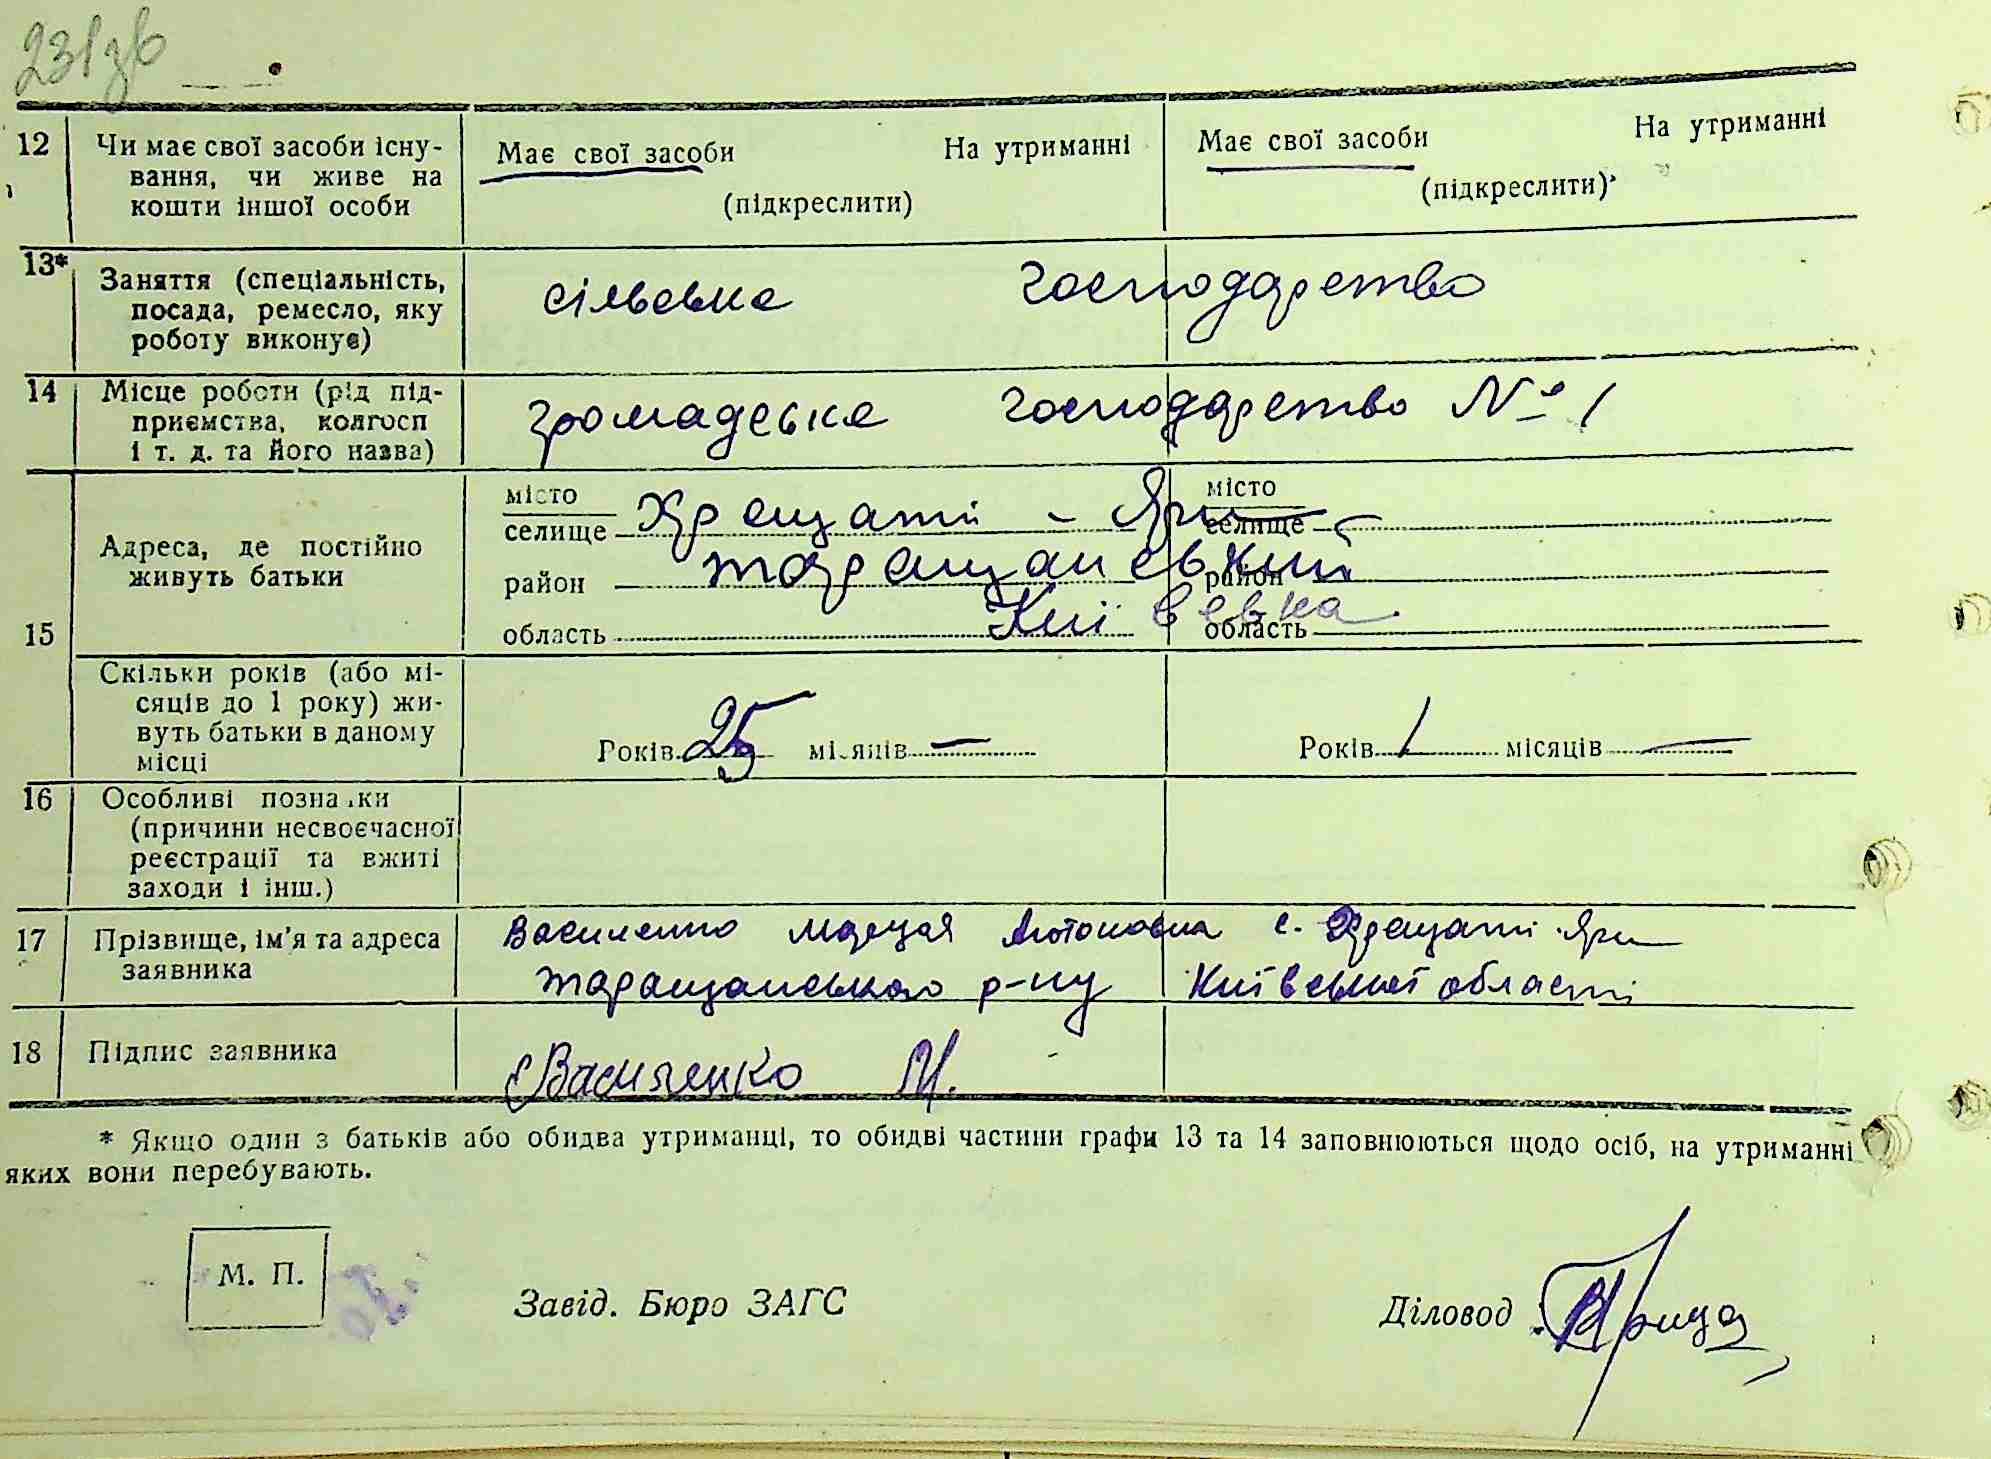 231зв
12 Чи має свої засоби існу-
вання, чи живе на
кошти іншої особи
Має свої засоби На утриманні
(підкреслити)
Має свої засоби На утриманні
(підкреслити)
13* Заняття (спеціальність,
посада, ремесло, яку
роботу виконує)
сільське господарство
14 Місце роботи (рід під-
приємства, колгосп
і т. д. та його назва)
громадське господарство № 1
15
Адреса, де постійно
живуть батьки
місто
селище Хрещаті - Яри
район таращанський
область Київська
місто
селище
район
область
Скільки років (або мі-
сяців до 1 року) жи-
вуть батьки в даному
місці
Років 25 місяців —
Років 1 місяців —
16 Особливі познаки
(причини несвоєчасної
реєстрації та вжиті
заходи і інш.)
17 Прізвище, ім'я та адреса
заявника
Василенко Антоновна с. Хрещаті Яри
таращанського р-ну Київської області
18 Підпис заявника
Василенко М.
* Якщо один з батьків або обидва утриманці, то обидві частини графи 13 та 14 заповнюються щодо осіб, на утриманні
яких вони перебувають.
М. П.
Завід. Бюро ЗАГС
Діловод